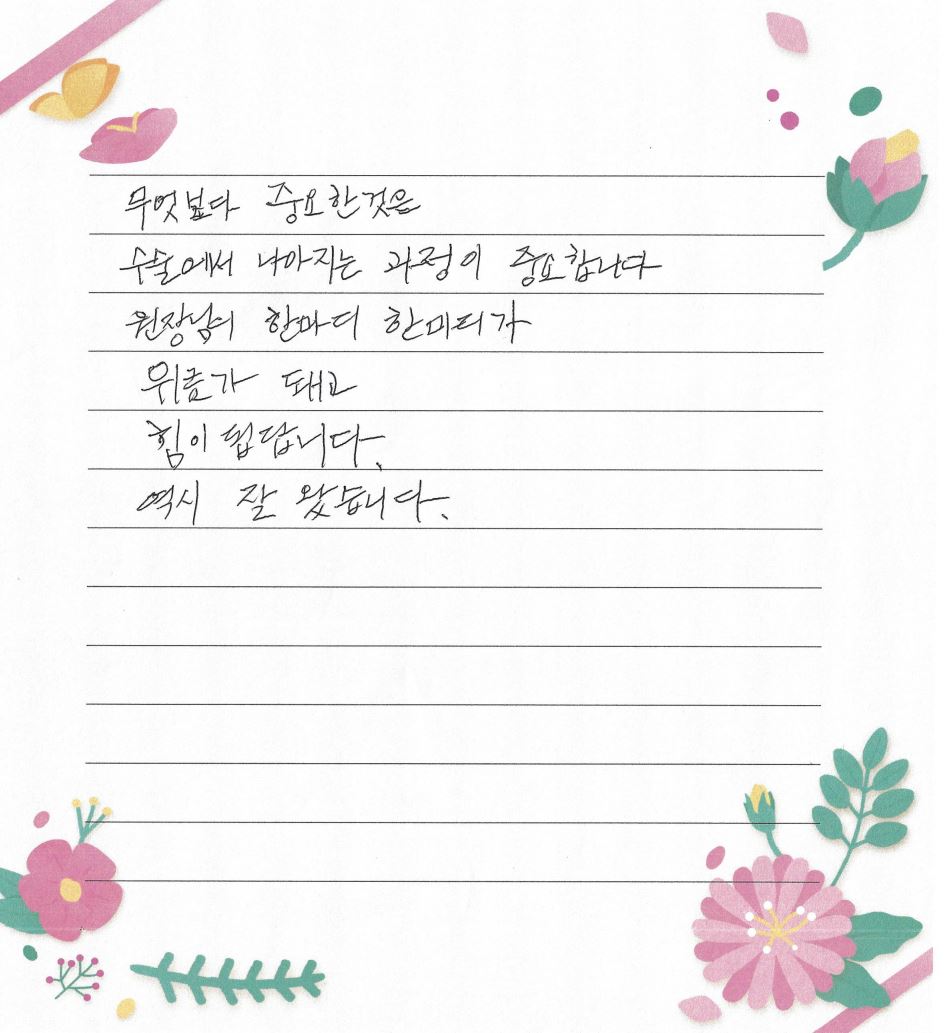 무엇보다 중요한것은
수술에서 나아지는 과정이 중요합니다
원장님의 한마디 한마디가
위로가 돼고
힘이 됩답니다.
역시 잘 왔습니다.